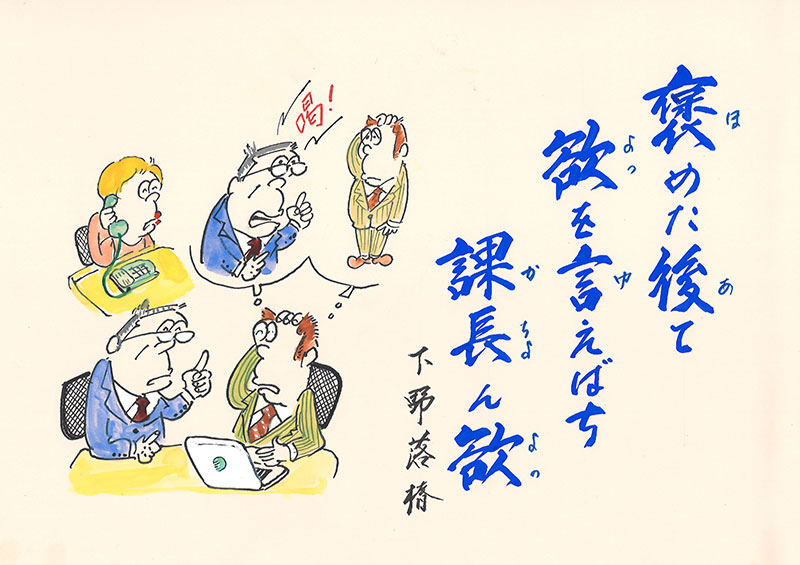 ほ あ
褒めた後て
よっ ゆ
欲を言えばち
か ちよ よっ
課長ん欲
下野落椿
喝!